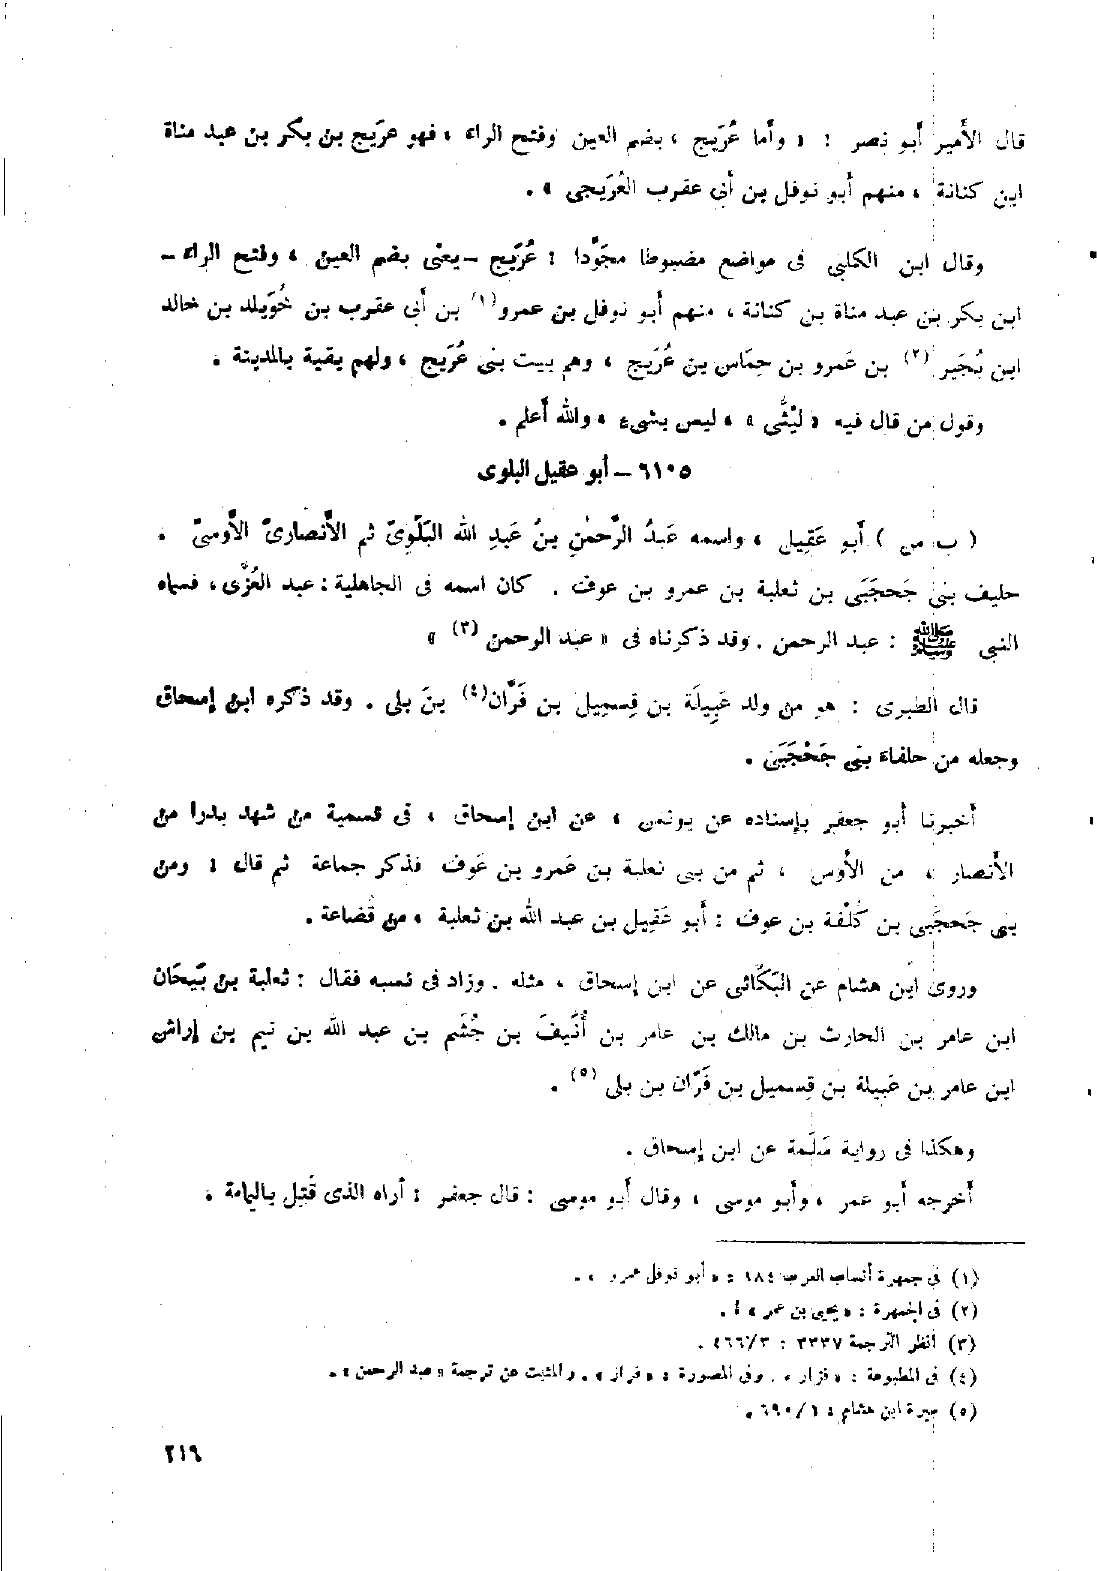 قال الأمير أبو نصر : « وأما عُرَيج ، بضم العين وفتح الراء ، فهو عريج بن بكر بن عبد مناة
ابن كنانة ، منهم أبو نوفل بن أبى عقرب العُرَيجى » .
وقال ابن الكلبى فى مواضع مضبوطا مجَوَّدا : عُرَيج – يعنى بضم العين ، وفتح الراء –
ابن بكر بن عبد مناة بن كنانة ، منهم أبو نوفل بن عمرو(١) بن أبى عقرب بن خُوَيلد بن خالد
ابن بُجَير (٢) بن عَمرو بن حِمَاس بن عُرَيج ، وهم بيت بنى عُرَيج ، ولهم بقية بالمدينة .
وقول من قال فيه « ليْثى » ، ليس بشىء ، والله أعلم .
٦١٠٥ – أبو عقيل البلوى
( ب س ) أبو عَقِيل ، واسمه عَبدُ الرَّحمٰنِ بنُ عَبدِ الله البَلَوىّ ثم الأنصارىّ الأوسىّ .
حليف بنى جَحجَبَى بن ثعلبة بن عمرو بن عوف . كان اسمه فى الجاهلية : عبد العُزَّى ، فسماه
النبى ﷺ : عبد الرحمن . وقد ذكرناه فى « عبد الرحمن (٣) »
قال الطبرى : هو من ولد عَبِيلَة بن قِسمِيل بن فَرَّان(٤) بنَ بلى . وقد ذكره ابن إسحاق
وجعله من حلفاء بنى جَحْجَبَى .
أخبرنا أبو جعفر بإسناده عن يونس ، عن ابن إسحاق ، فى تسمية من شهد بدرا من
الأنصار ، من الأوس ، ثم من بنى ثعلبة بن عَمرو بن عَوف فذكر جماعة ثم قال : ومن
بنى جَحجَبى بن كُلْفة بن عوف : أبو عَقِيل بن عبد الله بن ثعلبة ، من قُضاعة .
وروى ابن هشام عن البَكَّائى عن ابن إسحاق ، مثله . وزاد فى نسبه فقال : ثعلبة بن بَيحَان
ابن عامر بن الحارث بن مالك بن عامر بن أُنَيفَ بن جُشَم بن عبد الله بن تيم بن إراش
ابن عامر بن عَبِيلة بن قِسميل بن فَرَّان بن بلى (٥) .
وهكذا فى رواية سَلَمة عن ابن إسحاق .
أخرجه أبو عمر ، وأبو موسى ، وقال أبو موسى : قال جعفر : أراه الذى قُتِل باليمامة .
(١) فى جمهرة أنساب العرب ١٨٤ : « أبو نوفل عمرو » .
(٢) فى الجمهرة : « يحيى بن عمر » .
(٣) أنظر الترجمة ٣٣٣٧ : ٤٦٦/٣ .
(٤) فى المطبوعة : « فزار » . وفى المصورة : « فراز » . والمثبت عن ترجمة « عبد الرحمن » .
(٥) سيرة ابن هشام : ٦٩٠/١ .
٢١٩